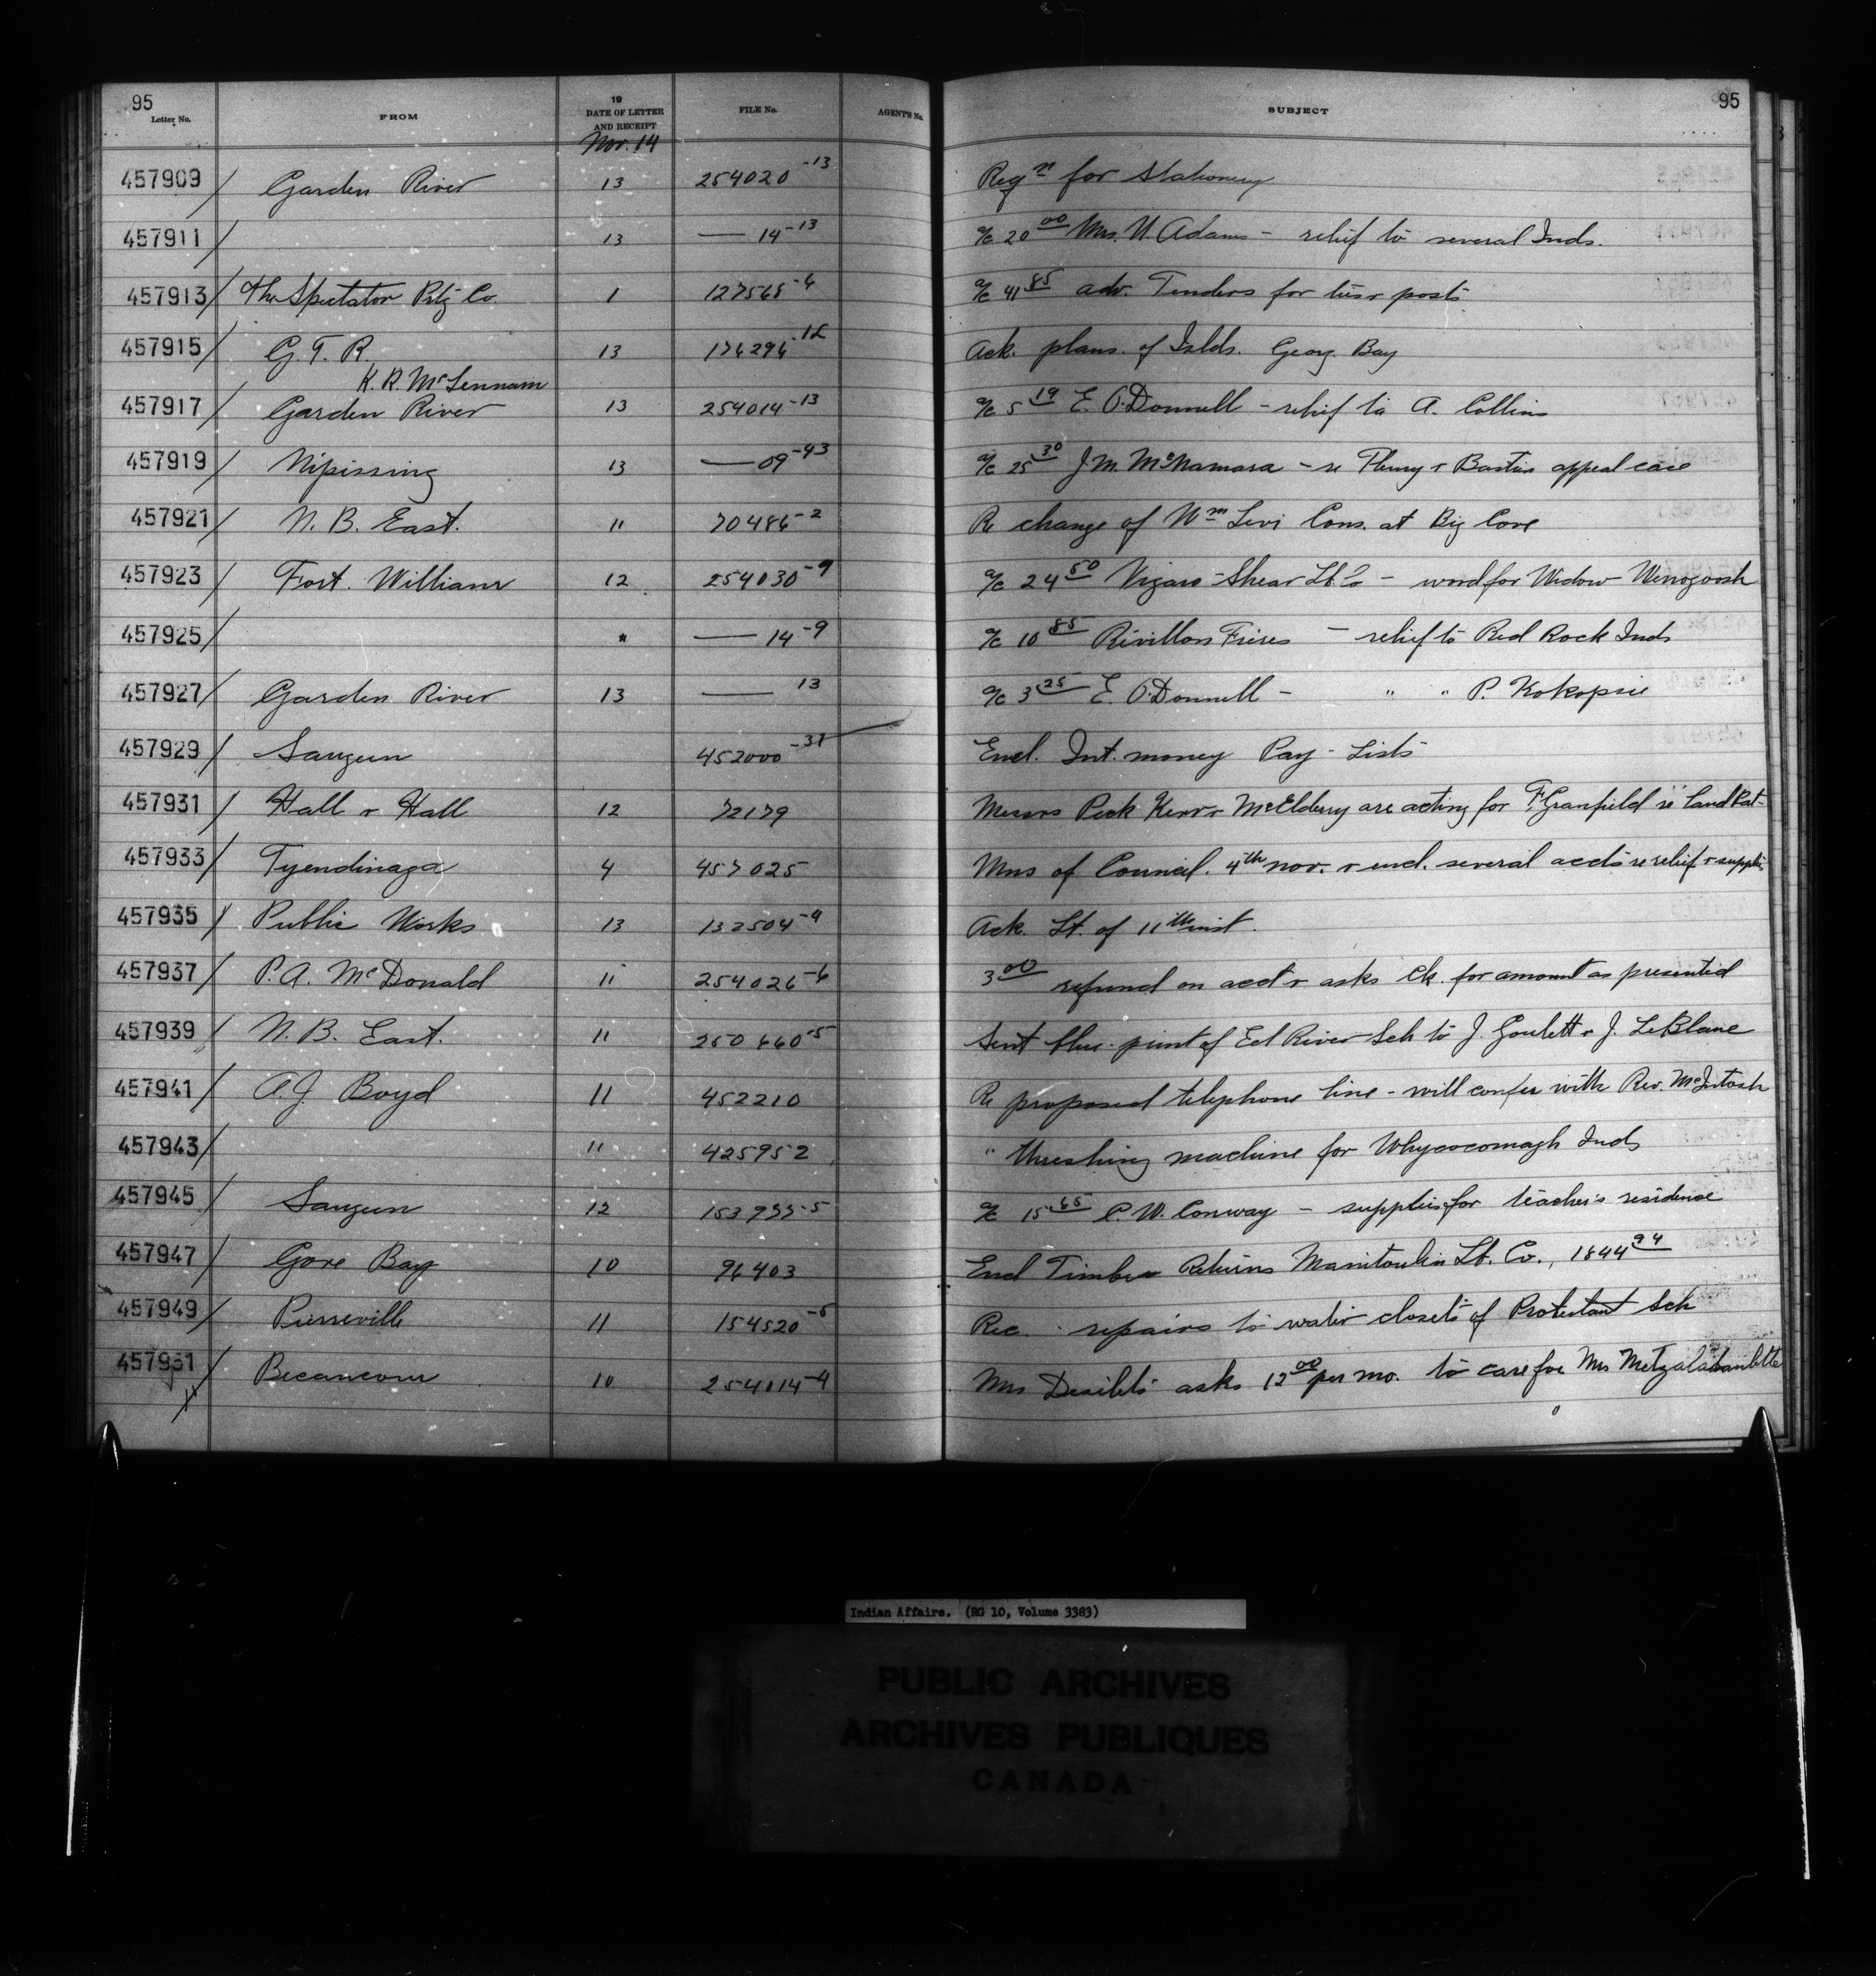 95 95
Letter No. FROM 19 DATE OF LETTER AND RECEIPT FILE No. AGENT'S No. SUBJECT
Nov. 14
457909 / Garden River 13 254020-13 Reqn for stationery
457911 / 13 — 14-13 a/c 20 00 Mrs. N. Adams - relief to several Inds.
457913 / The Spectator Ptg Co. 1 127568-4 a/c 41 85 adv. Tenders for posts
457915 / G. T. R. 13 176296-12 Ack. plans of Islds. Georg. Bay
K. R. McLennam
457917 / Garden River 13 254014-13 a/c 5 19 E. O'Donnell - relief to A. Collins
457919 / Nipissing 13 — 09-43 a/c 25 30 J. M. McNamara - re & appeal case
457921 / N. B. East. 11 70486-2 Re change of Wm Levi Cons. at Big Cove
457923 / Fort. William 12 254030-9 a/c 24 50 Vigars-Shear - wood for Widow Wenogoosh
457925 / " — 14-9 a/c 10 85 Revillon Freres - relief to Red Rock Inds
457927 / Garden River 13 — 13 a/c 3 25 E. O'Donnell - " " P. Kokopsie
457929 / Saugeen 452000-31 Encl. Int. money Pay-Lists
457931 / Hall & Hall 12 72179 Messrs Peck Kerr & McElderry are acting for F. Granfield re Land Pat-
457933 / Tyendinaga 4 457025 Mns of Council. 4th Nov. & encl. several accts re relief & supplies
457935 / Public Works 13 132504-9 Ack. Lt. of 11th inst.
457937 / P. A. McDonald 11 254026-6 3 00 refund on acct & asks ck. for amount as presented
457939 / N. B. East. 11 250660-5 Sent blue-print of Eel River Sch to J. Goulett & J. LeBlanc
457941 / A. J. Boyd 11 452210 Re proposed telephone line - will confer with Rev. McIntosh
457943 / 11 425952 " threshing machine for Whycocomagh Inds
457945 / Saugeen 12 153933-5 a/c 15 65 C. W. Conway - supplies for teacher's residence
457947 / Gore Bay 10 96403 Encl Timber Returns Manitoulin Lt. Co., 1844 94
457949 / Pierreville 11 154520-5 Rec. repairs to water closets of Protestant Sch
457951 / Becancour 10 254014-4 Mrs Desilets asks 12 00 per mo. to care for Mrs
Indian Affairs. (RG 10, Volume 3383)
PUBLIC ARCHIVES
ARCHIVES PUBLIQUES
CANADA